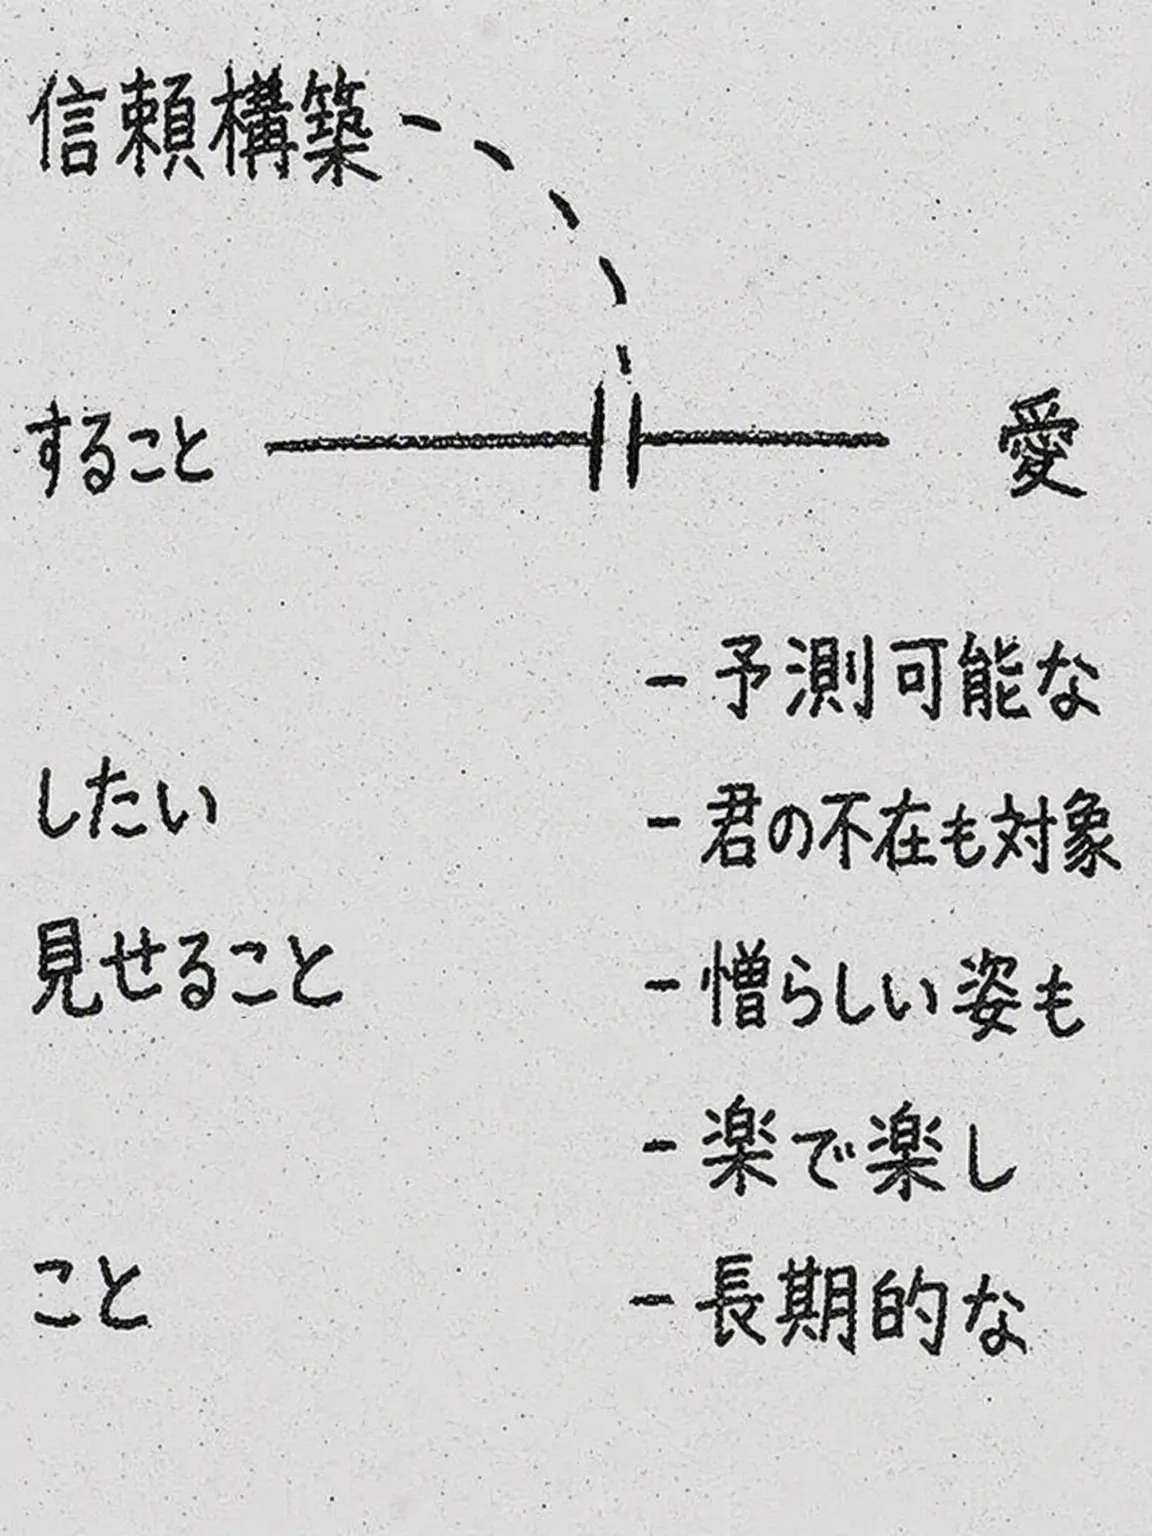 信頼構築
すること 愛
- 予測可能な
したい - 君の不在も対象
見せること - 憎らしい姿も
- 楽で楽し
こと - 長期的な